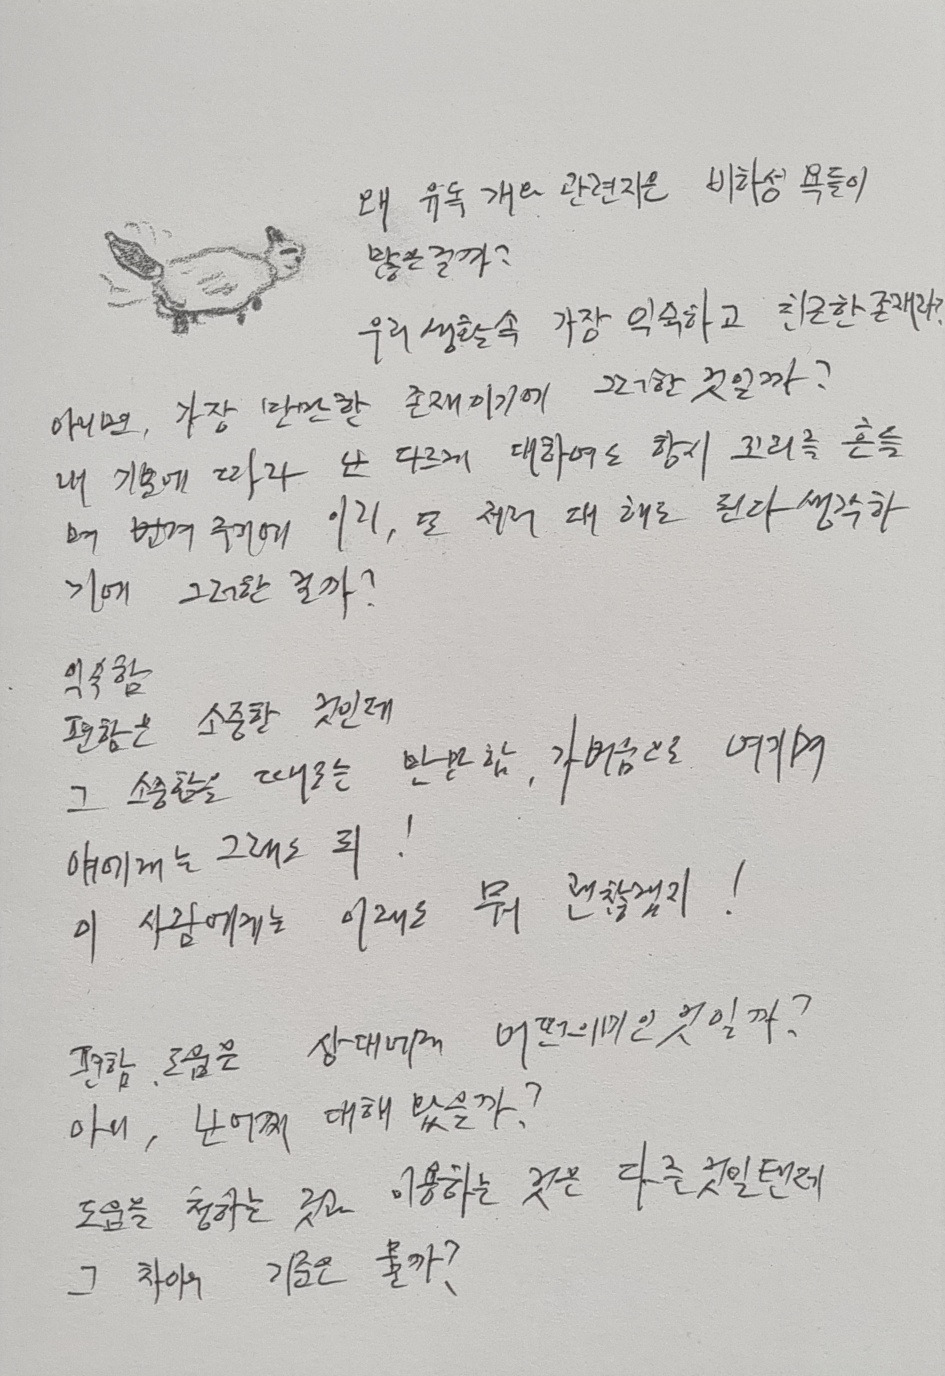 왜 유독 개와 관련지은 비하성 욕들이
많은걸까?
우리 생활속 가장 익숙하고 친근한 존재라?
아니면, 가장 만만한 존재이기에 그러한 것일까?
내 기분에 따라 난 다르게 대하여도 항시 꼬리를 흔들
며 반겨 주기에 이리, 또 저리 대 해도 된다 생각하
기에 그러한 걸까?
익숙함
편함은 소중할 것인데
그 소중함을 때로는 만만함, 가벼움으로 여기며
얘에게는 그래도 돼!
이 사람에게는 이래도 뭐 괜찮겠지!
편함, 도움은 상대에게 어떤의미인 것일까?
아니, 난 어찌 대해 왔을까?
도움을 청하는 것과 이용하는 것은 다른것일텐데
그 차이의 기준은 뭘까?